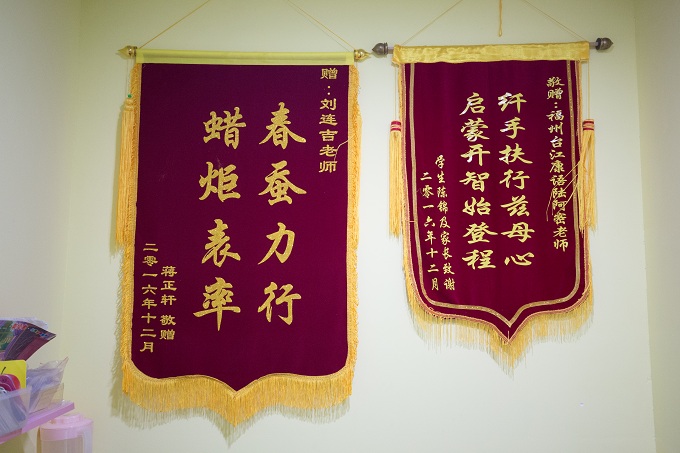 赠：刘连吉老师
春蚕力行
蜡炬表率
蒋正轩 敬赠
二零一六年十二月
敬赠：福州台江康语陆阿密老师
纤手扶行兹母心
启蒙开智始登程
学生陈锦及家长致谢
二零一六年十二月